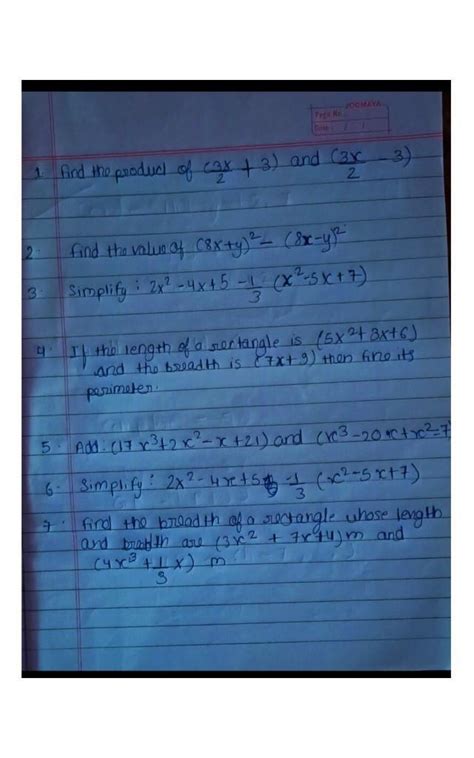 Page No.
Date
1 Find the product of (3x/2 + 3) and (3x/2 - 3)
2. Find the value of (8x+y)² - (8x-y)²
3 Simplify : 2x² - 4x + 5 - 1/3 (x² - 5x + 7)
4. If the length of a rectangle is (5x² + 3x + 6)
and the breadth is (7x + 9) then find its
perimeter.
5. Add : (17x³ + 2x² - x + 21) and (x³ - 20x + x² = 7
6. Simplify : 2x² - 4x + 5 - 1/3 (x² - 5x + 7)
7. Find the breadth of a rectangle whose length
and breadth are (3x² + 7x + 4) m and
(4x³ + 1/3 x) m